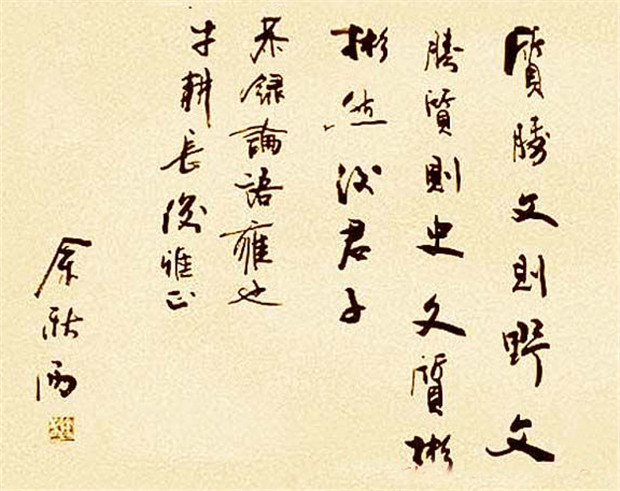 質勝文則野文
勝質則史文質彬
彬然後君子
恭錄論語雍也
牛耕長俊雅正
余秋雨